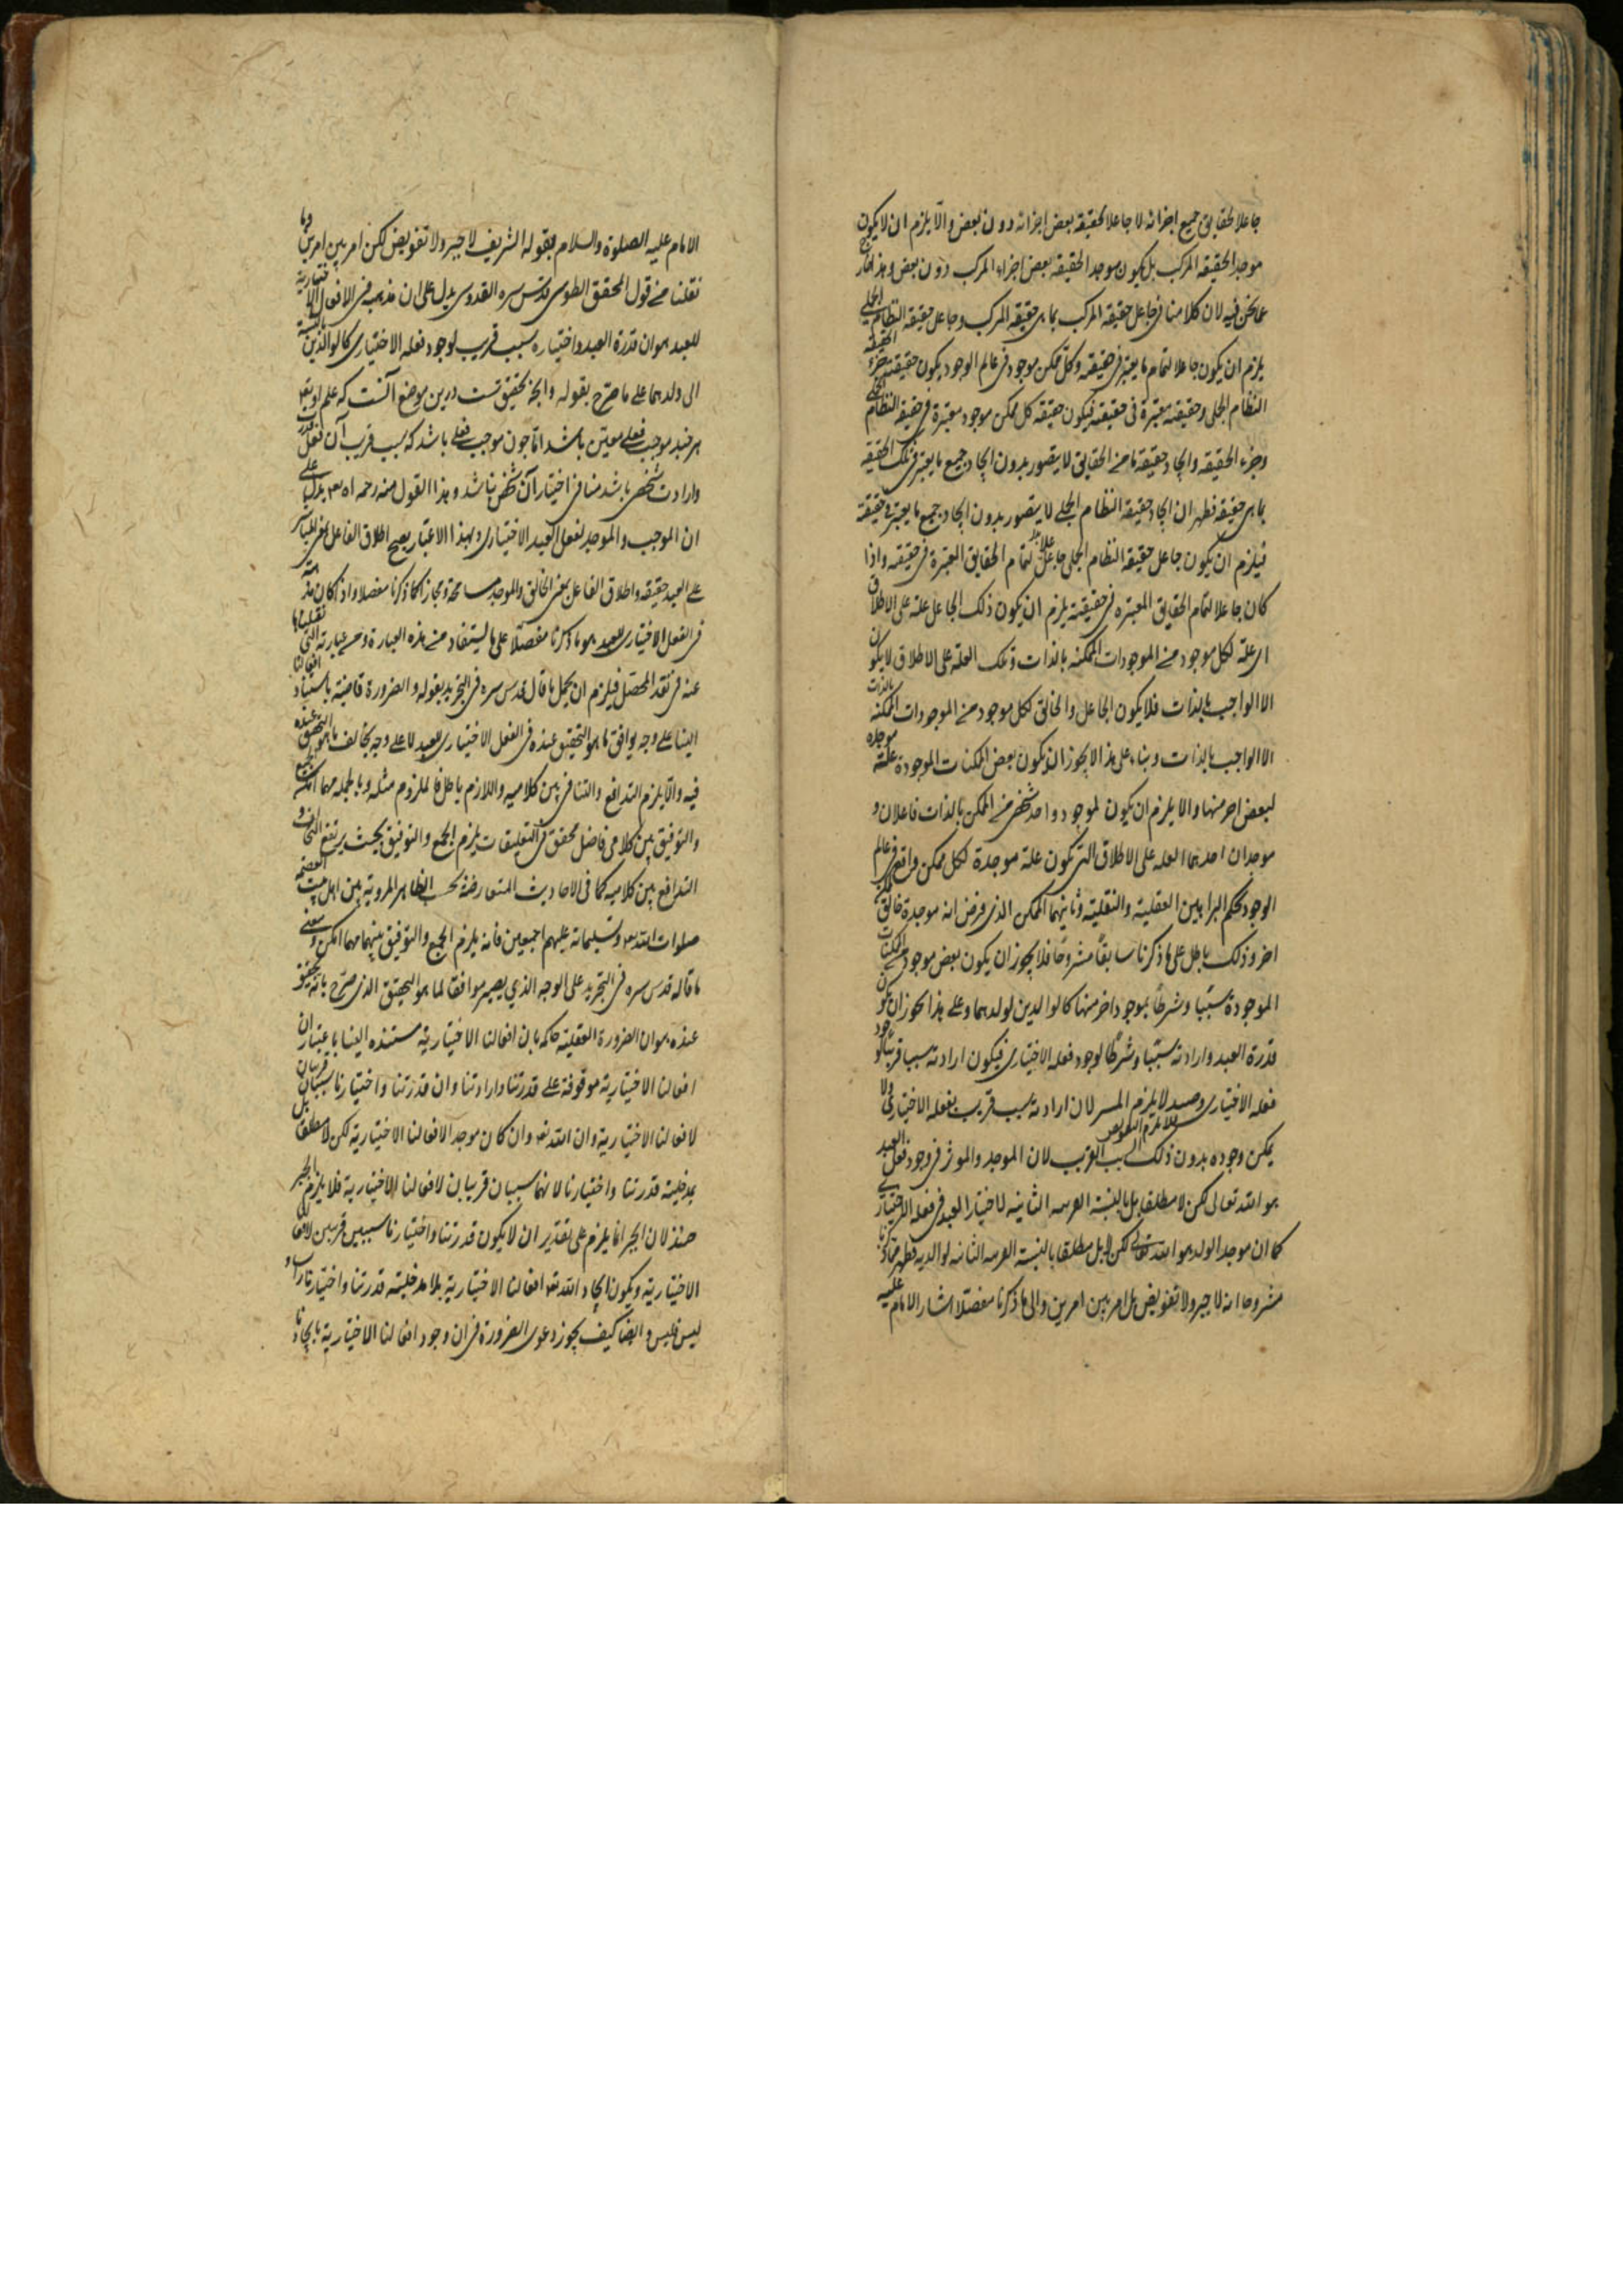 جاعلا لحقايق جميع اجزائه لا جاعلا لحقيقة بعض اجزائه دون بعض والا يلزم ان لا يكون
موجد الحقيقة المركب بل يكون موجد الحقيقة بعض اجزاء المركب دون بعض وهذا خارج
عما نحن فيه لان كلامنا في جاعل حقيقة المركب بما هي حقيقة المركب وجاعل حقيقة النظام الجملي
يلزم ان يكون جاعلا لتمام ما يعتبر في حقيقته وكل ممكن موجود في عالم الوجود يكون حقيقته جزء الحقيقة
النظام الجملي وحقيقته معتبرة في حقيقته فيكون حقيقة كل ممكن موجود معتبرة في حقيقة النظام الجملي
وجزء الحقيقة وايجاد حقيقة ما من الحقايق لا يتصور بدون ايجاد جميع ما يعتبر في تلك الحقيقة
بما هي حقيقة فظهر ان ايجاد حقيقة النظام الجملي لا يتصور بدون ايجاد جميع ما يعتبر في حقيقته
فيلزم ان يكون جاعل حقيقة النظام الجملي جاعلا لتمام الحقايق المعتبرة في حقيقته واذا
كان جاعلا لتمام الحقايق المعتبره في حقيقته يلزم ان يكون ذلك الجاعل علة على الاطلاق
اى علة لكل موجود من الموجودات الممكنه بالذات وتلك العلة على الاطلاق لا يكون
الا الواجب بالذات فلا يكون الجاعل والخالق لكل موجود من الموجودات الممكنه بالذات
الا الواجب بالذات وبناء على هذا لا يجوز ان يكون بعض الممكنات الموجودة علة موجدة
لبعض اخر منها والا يلزم ان يكون لموجود واحد شخصي من الممكن بالذات فاعلان و
موجدان احدهما العله على الاطلاق التي يكون علة موجدة لكل ممكن واقع في عالم
الوجود بحكم البراهين العقلية والنقلية وثانيهما الممكن الذي فرض انه موجدة خالق
اخر وذلك باطل على ما ذكرنا سابقا مشروحا فلا يجوز ان يكون بعض موجود من الممكنات
الموجودة سببا وشرطا بموجود اخر منها كالوالدين لولدهما وعلى هذا يجوز ان يكون
قدرة العبد وارادته سببا وشرطا لوجود فعله الاختياري فيكون ارادته سببا قريبا لوجود
فعله الاختياري لان ارادته سبب قريب بفعله الاختياري ولا
يمكن وجوده بدون ذلك السبب القريب لان الموجد والموثر في وجود فعل العبد
هو الله تعالى لكن لا مطلقا بل بالنسبة لاختيار العبد في فعله الاختياري
كما ان موجد الولد هو الله تعالى لكن لا مطلقا بل بالنسبة لوالديه فظهر مما ذكرنا
مشروحا انه لا جبر ولا تفويض بل امر بين امرين والى ما ذكرنا مفصلا اشار الامام عليه
الامام عليه الصلوة والسلام بقوله الشريف لا جبر ولا تفويض لكن امر بين امرين وما
نقلنا من قول المحقق الطوسي قدس سره القدوسي يدل على ان مذهبه في الافعال الاختيارية
للعبد هو ان قدرة العبد واختياره سبب قريب لوجود فعله الاختياري كالوالدين بالنسبة
الى ولدهما على ما صرح بقوله وانچه تحقيق تست درين موضع آنست كه علم او بفعل
هر چند موجب فعلى معين باشد اما چون موجب فعلى باشد كه سبب قريب آن فعل قدرت
وارادت شخصى باشد منافى اختيار آن شخص نباشد وهذا القول منه رحمه اه يدل على
ان الموجب والموجد لفعل العبد الاختياري وبهذا الاعتبار يصح اطلاق الفاعل بمعنى المباشر
على العبد حقيقة واطلاق الفاعل بمعنى الخالق والموجد مسامحة ومجازا كما ذكرنا مفصلا واذا كان مذهبه
في الفعل الاختياري للعبد هو ما ذكرنا مفصلا على ما يستفاد من هذه العبارة ومن عبارته التي نقلناها
عنه في نقد المحصل فيلزم ان يحمل ما قال قدس سره في التجريد بقوله والضرورة قاضية باستناد افعالنا
الينا على وجه يوافق ما هو التحقيق عنده في الفعل الاختياري للعبد لا على وجه يخالف ما هو التحقيق عنده
فيه والا يلزم التدافع والتنافي بين كلاميه واللازم باطل فالملزوم مثله وبالجمله مهما امكن الجمع
والتوفيق بين كلامى فاضل محقق في التعليقات يلزم الجمع والتوفيق بحيث يرتفع التخالف و
التدافع بين كلاميه كما في الاحاديث المتعارضة بحسب الظاهر المروية بين اهل بيت العصمة
صلوات الله وتسليماته عليهم اجمعين فانه يلزم الجمع والتوفيق بينهما مهما امكن ومعنى
ما قاله قدس سره في التجريد على الوجه الذي يصير موافقا لما هو التحقيق الذي صرح بانه تحقيق
عنده هو ان الضرورة العقلية حاكمه بان افعالنا الاختيارية مستنده الينا باعتبار ان
افعالنا الاختيارية موقوفة على قدرتنا وارادتنا وان قدرتنا واختيارنا سببان قريبان
لافعالنا الاختيارية وان الله تعه وان كان موجد الافعالنا الاختيارية لكن لا مطلقا بل
بمدخلية قدرتنا واختيارنا لانهما سببان قريبان لافعالنا الاختيارية فلا يلزم الجبر
حينئذ لان الجبر انما يلزم على تقدير ان لا يكون قدرتنا واختيارنا سببين قريبين لافعالنا
الاختيارية ويكون ايجاد الله تعه افعالنا الاختيارية بلا مدخلية قدرتنا واختيارنا
ليس فليس وايضا كيف يجوز دعوى الضرورة في ان وجود افعالنا الاختيارية بايجادنا